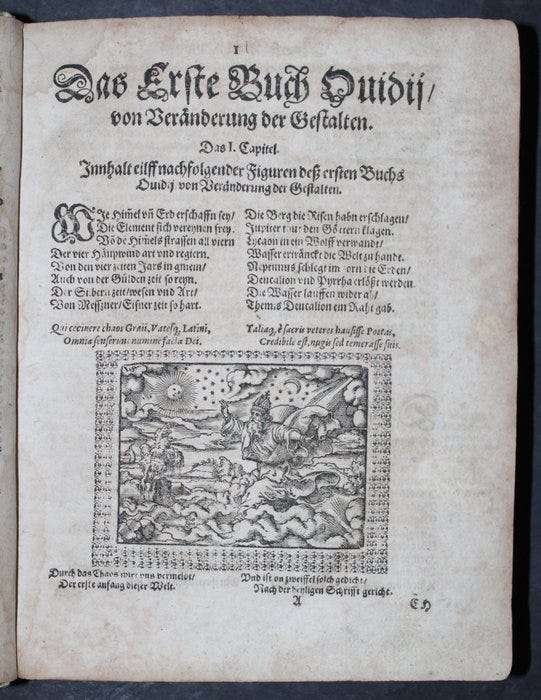 1
Das Erste Buch Ouidij/
von Veränderung der Gestalten.
Das I. Capitel.
Innhalt eilff nachfolgender Figuren deß ersten Buchs
Ouidij von Veränderung der Gestalten.
WJe Him̃el vñ Erd erschaffn sey/
Die Element sich vereynen frey.
Võ dẽ Him̃els strassen all viern
Der vier Häuptwind art vnd regiern.
Von den vier zeiten Jars in gmein/
Auch von der Gülden zeit so reyn.
Der Silbern zeit/ wesen vnd Art/
Von Messner/ Eisner zeit so hart.
Die Berg die Risen habn erschlagen/
Jupiter thut den Göttern klagen.
Lycaon in ein Wolff verwandt/
Wasser ertränckt die Welt zu handt.
Neptunus schlegt im zorn die Erden/
Deucalion vnd Pyrrha erlößt werden.
Die Wasser lauffen wider ab/
Themis Deucalion ein Raht gab.
Qui cecinere chaos Graii, Vatesq́; Latini,
Omnia senserunt numine facta Dei.
Taliaq́; è sacris veteres hausisse Poetas,
Credibile est, nugis sed temerasse suis.
Durch das Chaos wirt vns vermeldt/
Der erste anfang dieser Welt.
Vnd ist on zweiffel solch gedicht/
Nach der heyligen Schrifft gericht.
A